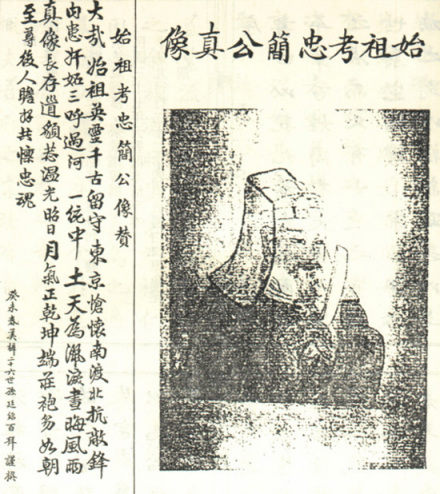 始祖考忠簡公真像
始祖考忠簡公像贊
大哉始祖英靈千古留守東京愴懷南渡北抗敵鋒
内患奸妬三呼過河一統中土天為淚晝晦風雨
真像長存遺慈溫光昭日月氣正乾坤端莊袍笏如朝
至尊後人瞻拜共懷忠魂
癸未春二十六世孫廷百拜謹撰